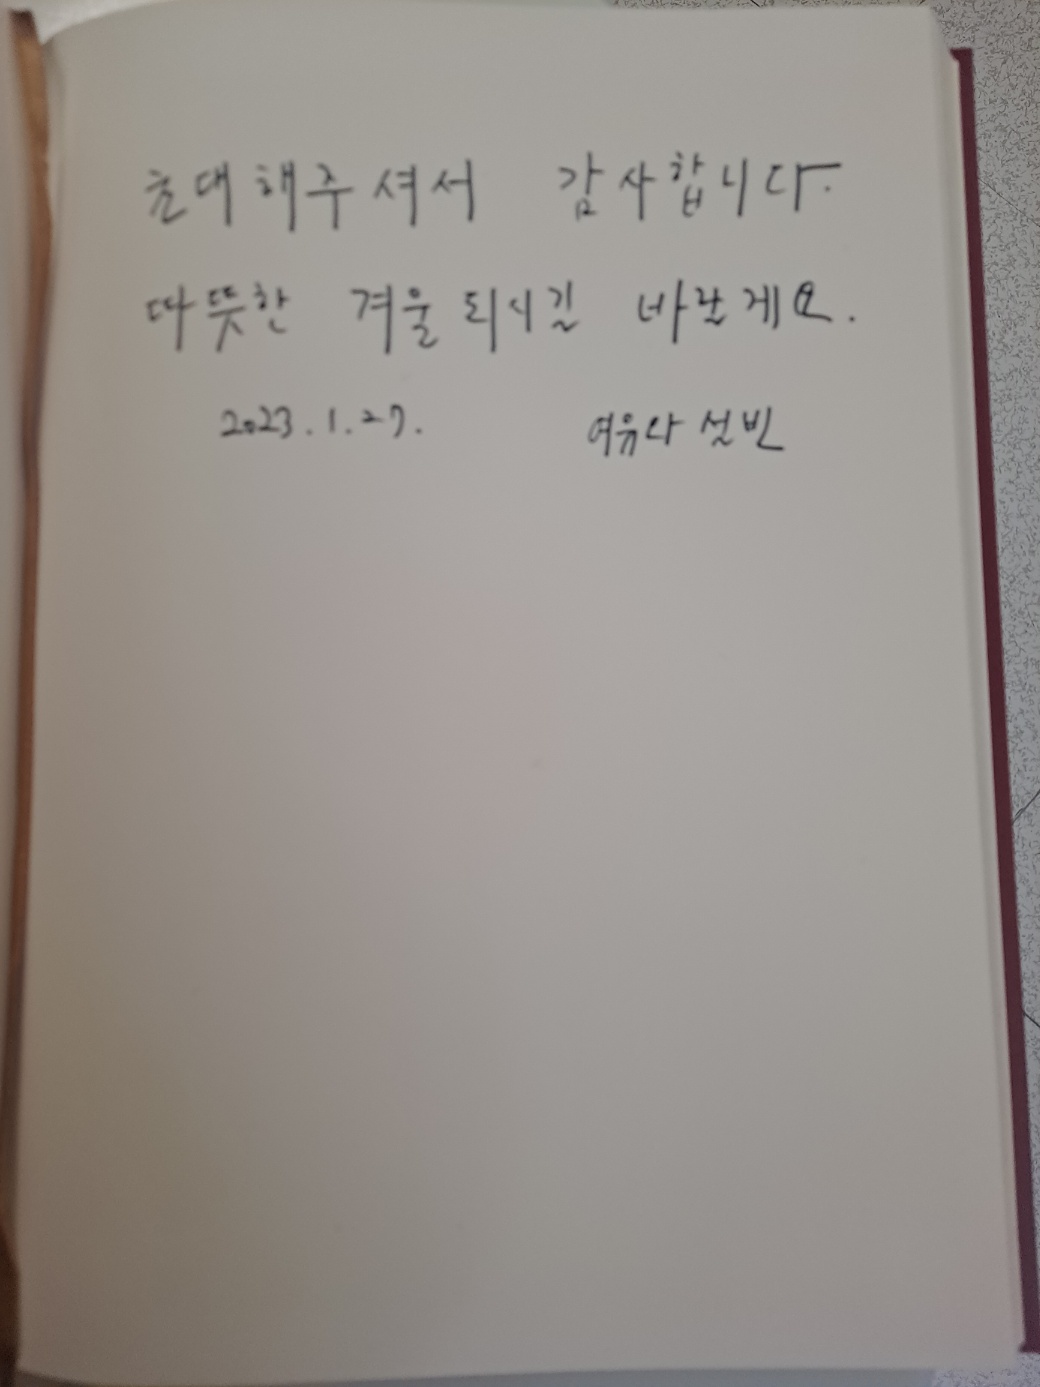 초대해주셔서 감사합니다.
따뜻한 겨울 되시길 바랄게요.
2023.1.27. 여유와 설빈